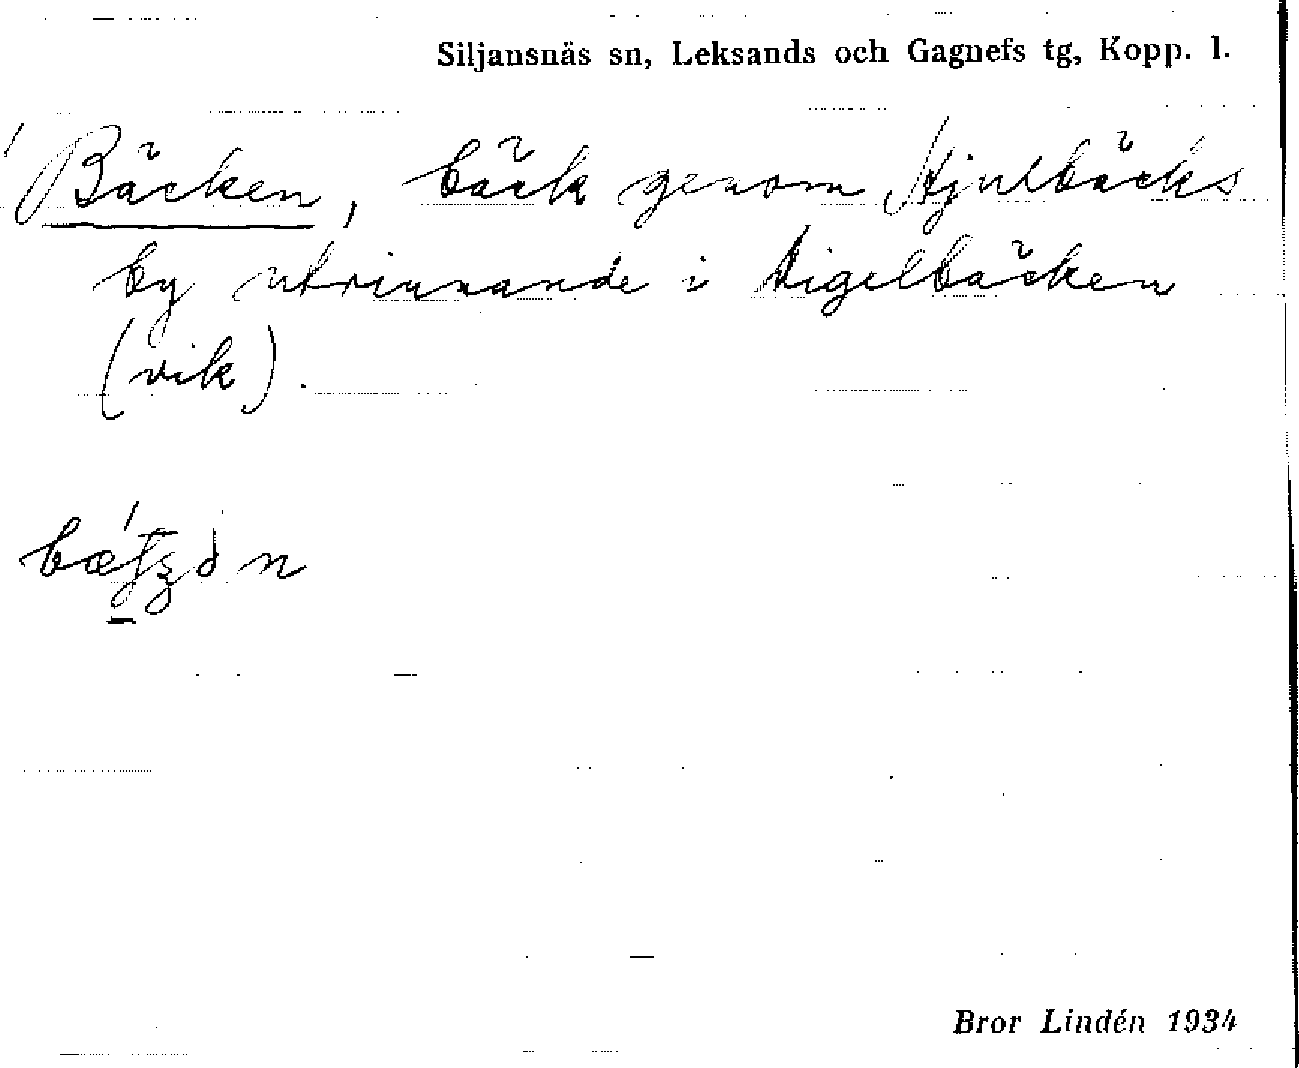 Siljansnäs sn, Leksands och Gagnefs tg, Kopp. l.
Bäcken, bäck genom Hjulbäcks
by utrinnande i Tigelbäcken
(vik).
Bror Lindén 1934